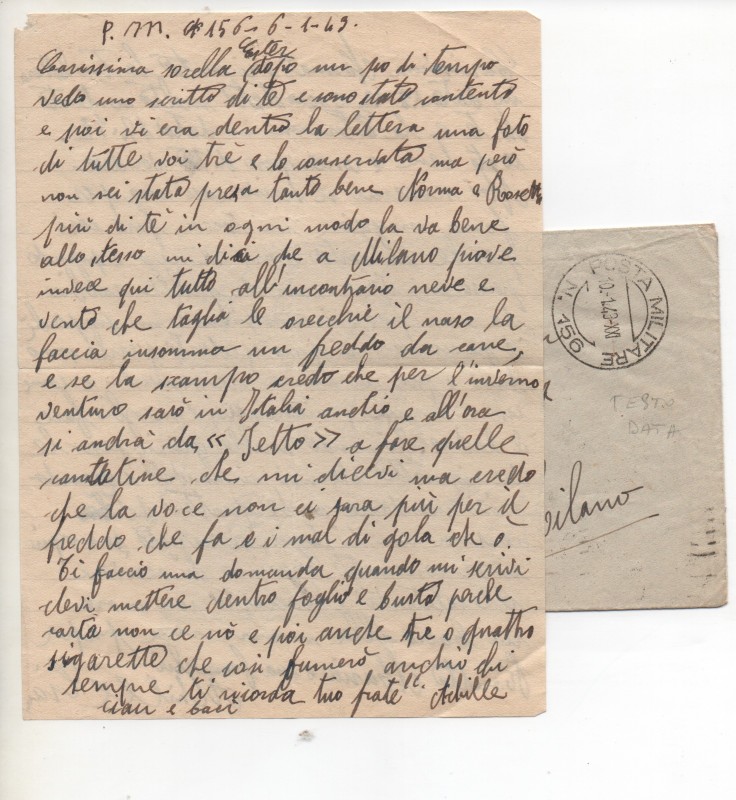 P. M. 156 6-1-43.
Ester
Carissima sorella dopo un po di tempo
vedo uno scritto di tè e sono stato contento
e poi vi era dentro la lettera una foto
di tutte voi trè e lo conservata ma però
non sei stata presa tanto bene Norma e
più di tè in ogni modo la va bene
allo stesso mi dici che a Milano piove
invece qui tutto all'incontrario neve e
vento che taglia le orecchie il naso la
faccia insomma un freddo da cane,
e se la scampo credo che per l'inverno
venturo sarò in Italia anchio e all'ora
si andrà da, « Jetto » a fare quelle
cantatine che mi dicevi ma credo
che la voce non ci sara più per il
freddo che fa e i mal di gola che ò.
Ti faccio una domanda quando mi scrivi
devi mettere dentro foglio e busta perche
carta non ce nò e poi anche tre o quattro
sigarette che cosi fumerò anchio di
sempre ti ricorda tuo frate Achille
ciau e baci
N. POSTA MILITARE 156
TESTO
DATA
Milano